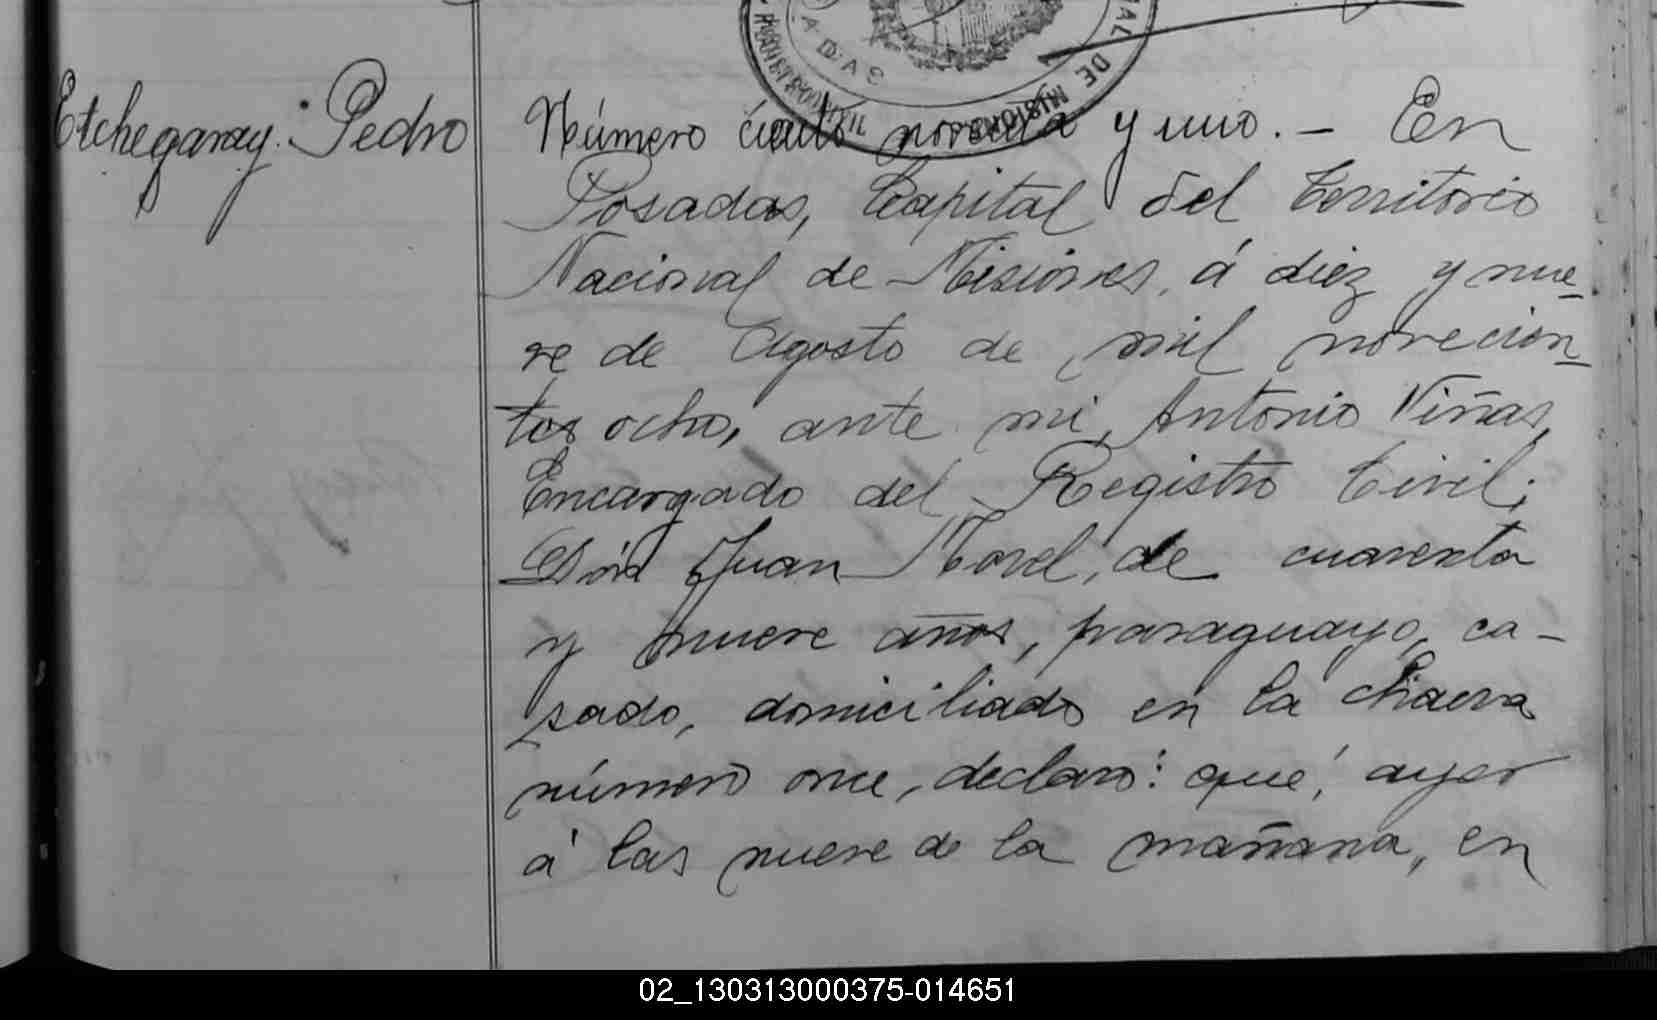 Etchegaray. Pedro
ADAS
AL DE MISIONES
Número ciento noventa y uno. – En
Posadas, Capital del Territorio
Nacional de Misiones, á diez y nue-
ve de Agosto de mil novecien-
tos ocho, ante mi, Antonio Viñas,
Encargado del Registro Civil;
Dón Juan Morel, de cuarenta
y nueve años, paraguayo, ca-
sado, domiciliado en la chacra
número once, declaró: que, ayer
á las nueve de la mañana, en
02_130313000375-014651